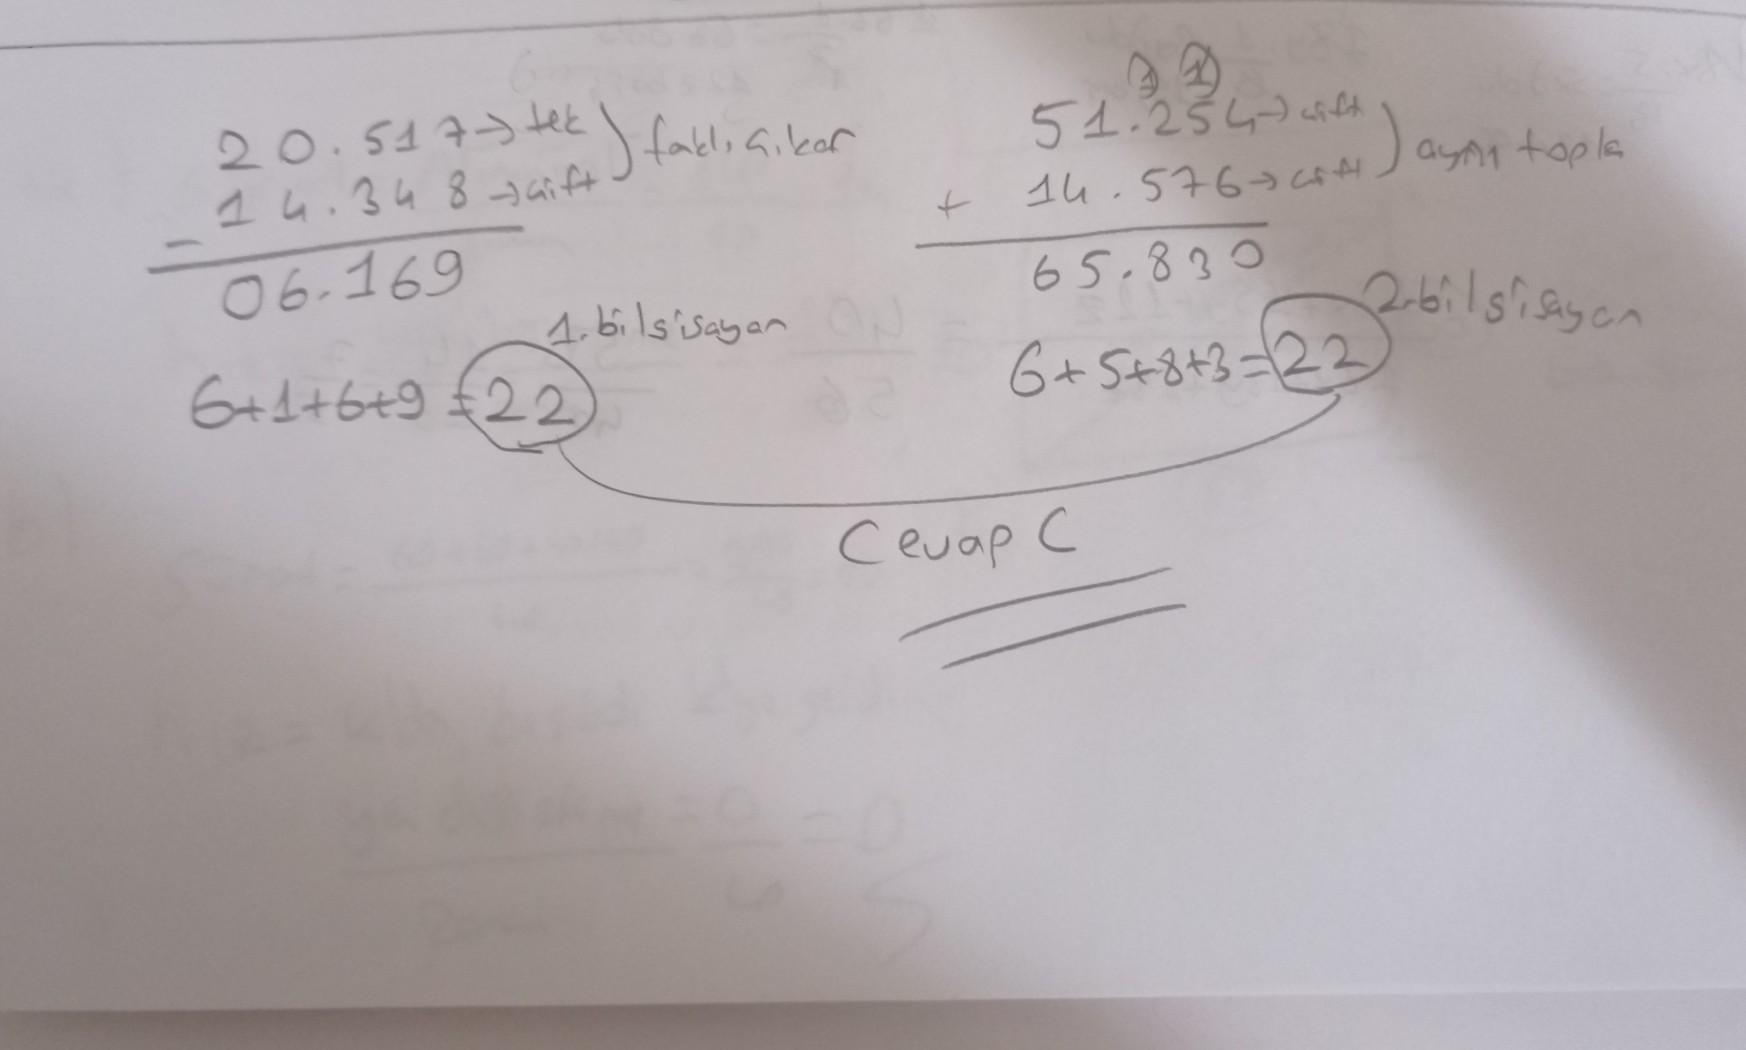 20.517→tek
14.348→çift
) farklı çıkar
−
06.169
1.bilgisayar
6+1+6+9=22
1 1
51.254→çift
+ 14.576→çift
) aynı topla
65.830
2.bilgisayar
6+5+8+3=22
Cevap C